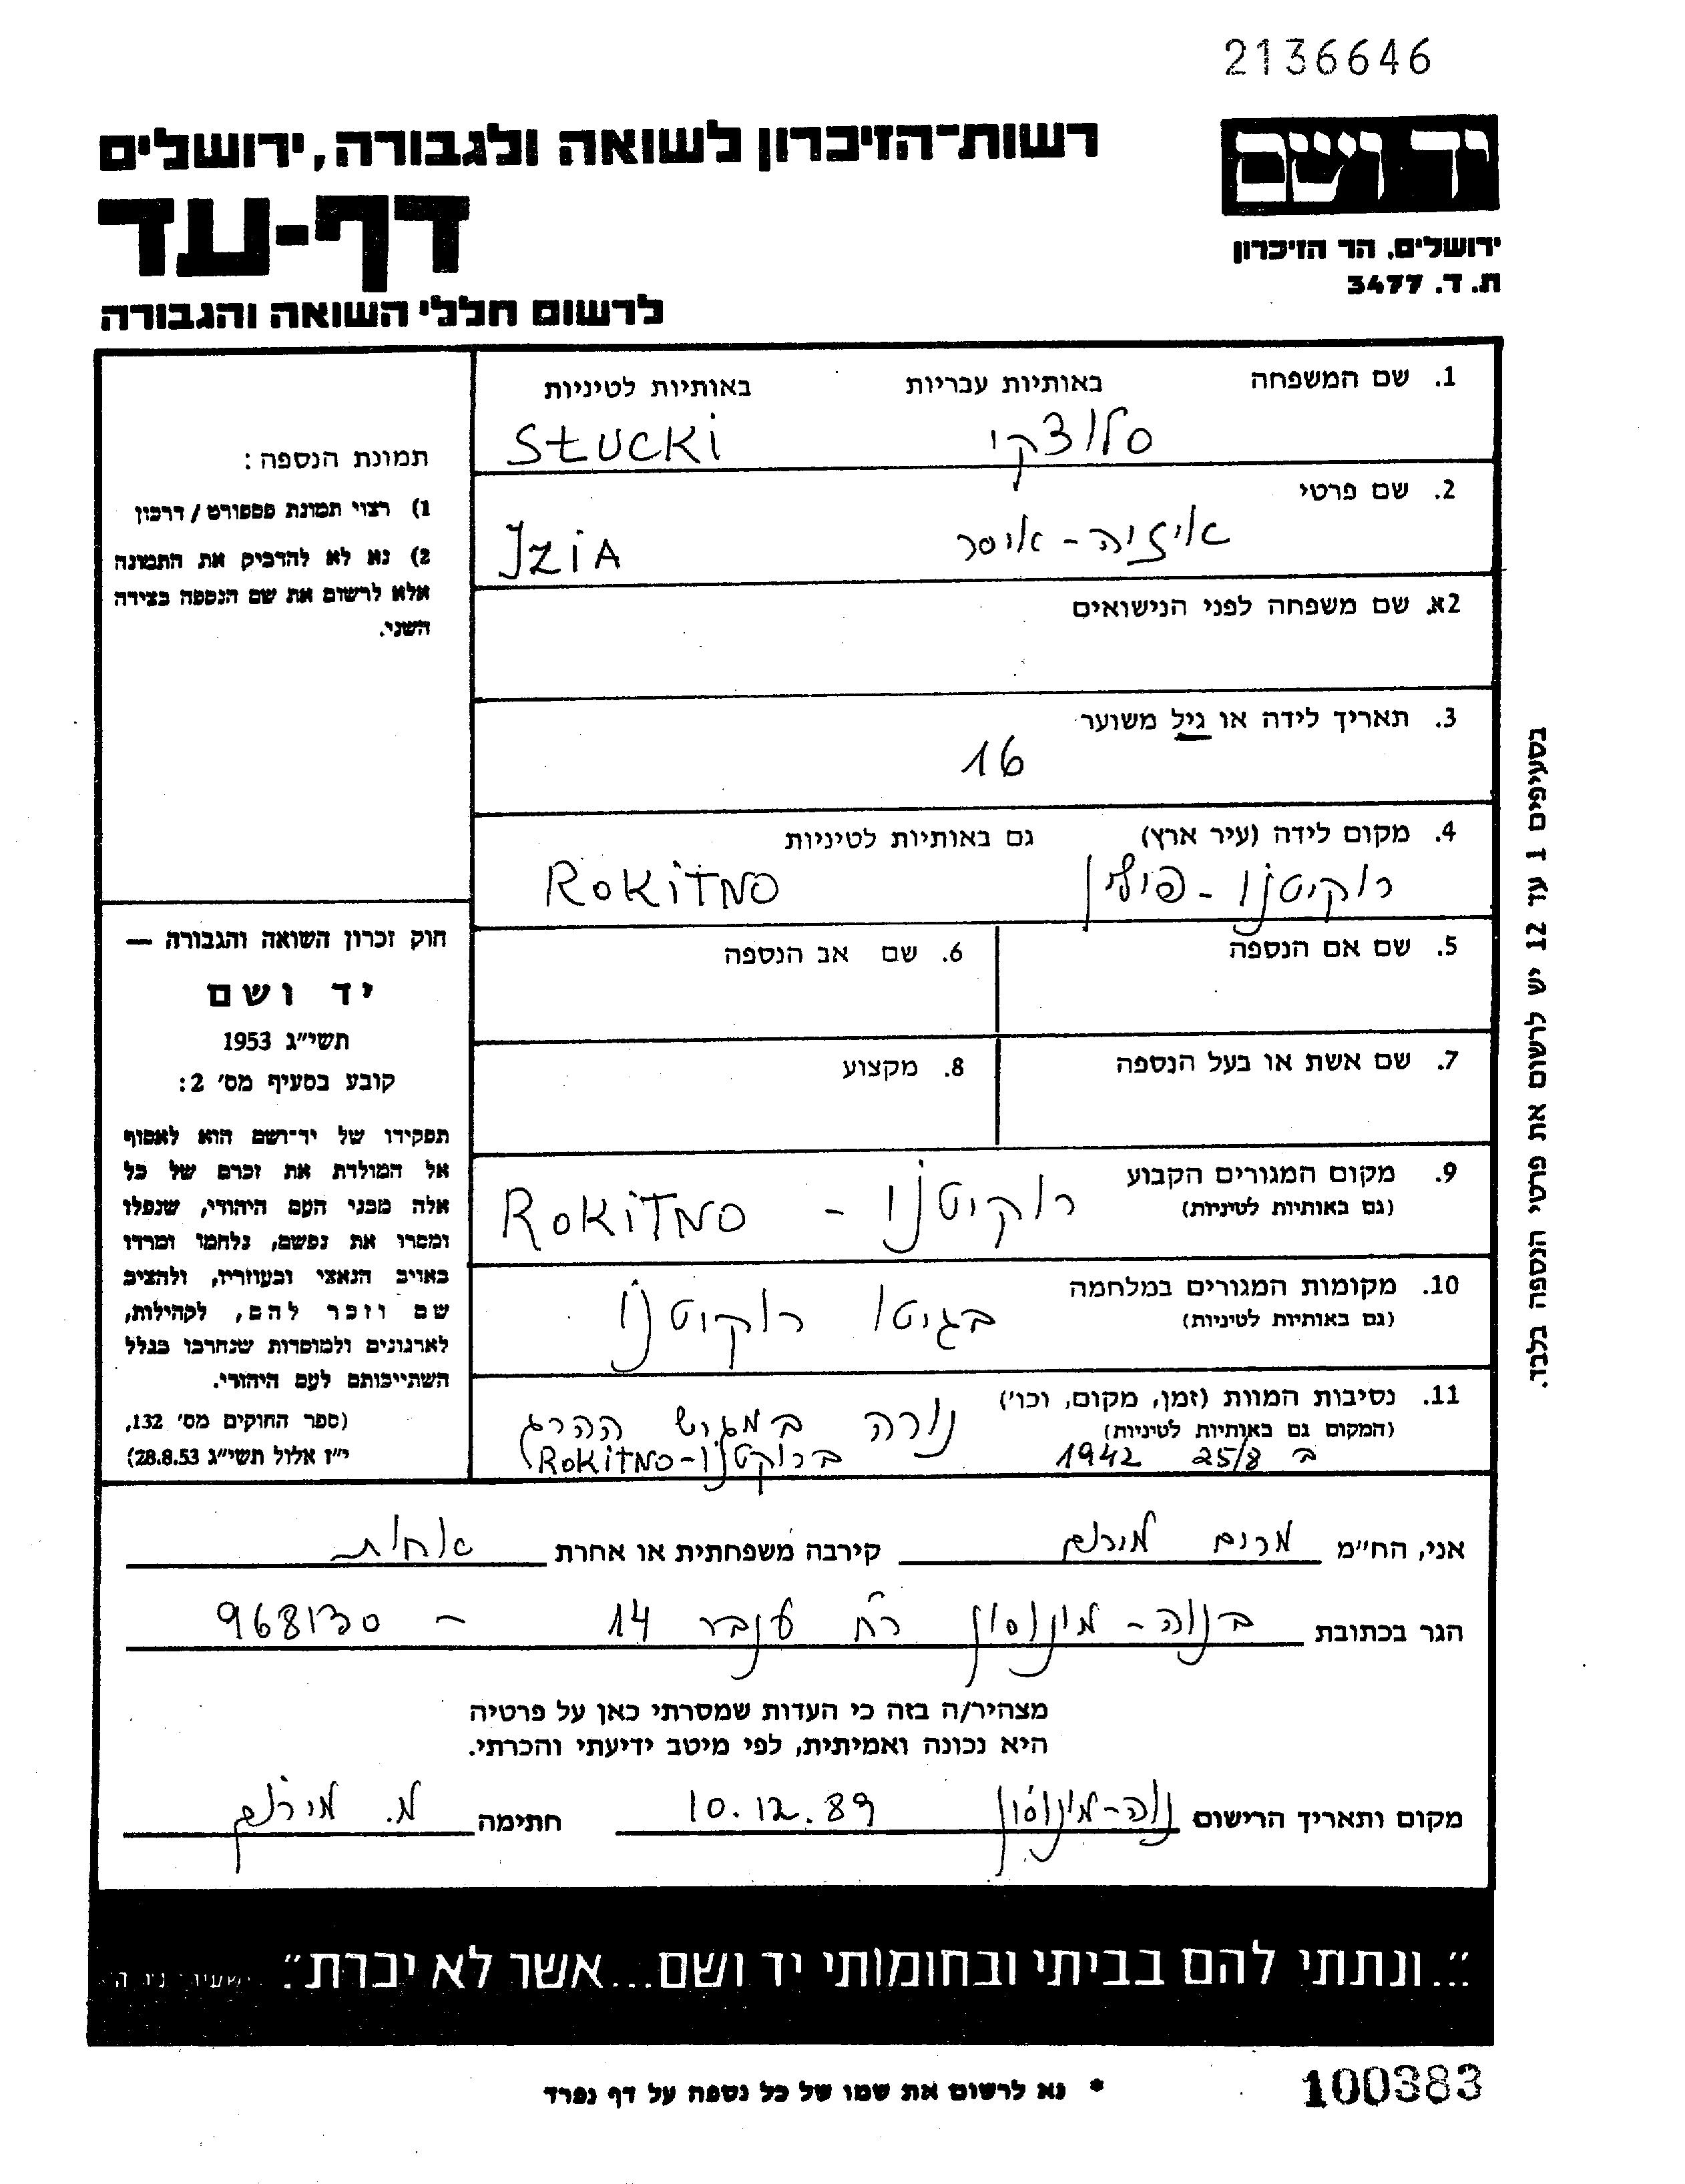 2136646
רשות־הזיכרון לשואה ולגבורה, ירושלים
יד ושם
דף-עד
ירושלים, הר הזיכרון
ת. ד. 3477
לרשום חללי השואה והגבורה
1. שם המשפחה באותיות עבריות באותיות לטיניות
סלוצקי SŁUCKi
2. שם פרטי
איזיה - איסר JZiA
2א. שם משפחה לפני הנישואים
3. תאריך לידה או גיל משוער
16
4. מקום לידה (עיר ארץ) גם באותיות לטיניות
רוקיטנו - פולין ROKiTNO
5. שם אם הנספה
6. שם אב הנספה
7. שם אשת או בעל הנספה
8. מקצוע
9. מקום המגורים הקבוע
(גם באותיות לטיניות)
רוקיטנו - ROKiTNO
10. מקומות המגורים במלחמה
(גם באותיות לטיניות)
בגיטו רוקיטנו
11. נסיבות המוות (זמן, מקום, וכו')
(המקום גם באותיות לטיניות)
נורה במגרש ההרג
ב 25/8 1942 ברוקטנו-ROKiTNO
תמונת הנספה:
1) רצוי תמונת פספורט / דרכון
2) נא לא להדביק את התמונה
אלא לרשום את שם הנספה בצידה
השני.
חוק זכרון השואה והגבורה —
יד ושם
תשי"ג 1953
קובע בסעיף מס' 2:
תפקידו של יד־ושם הוא לאסוף
אל המולדת את זכרם של כל
אלה מבני העם היהודי, שנפלו
ומסרו את נפשם, נלחמו ומרדו
באויב הנאצי ובעוזריו, ולהציב
שם וזכר להם, לקהילות,
לארגונים ולמוסדות שנחרבו בגלל
השתייכותם לעם היהודי.
(ספר החוקים מס' 132,
י"ז אלול תשי"ג 28.8.53)
בסעיפים 1 עד 12 יש לרשום את פרטי הנספה בלבד.
אני, הח"מ מרים קירבה משפחתית או אחרת אחות
הגר בכתובת בנווה - מונוסון רח' ענבר 14 - 968130
מצהיר/ה בזה כי העדות שמסרתי כאן על פרטיה
היא נכונה ואמיתית, לפי מיטב ידיעתי והכרתי.
מקום ותאריך הרישום נוה-מונוסון 10.12.89 חתימה מ.
"...ונתתי להם בביתי ובחומותי יד ושם...אשר לא יכרת". ישעיה נ"ו ה'
* נא לרשום את שמו של כל נספה על דף נפרד
100383